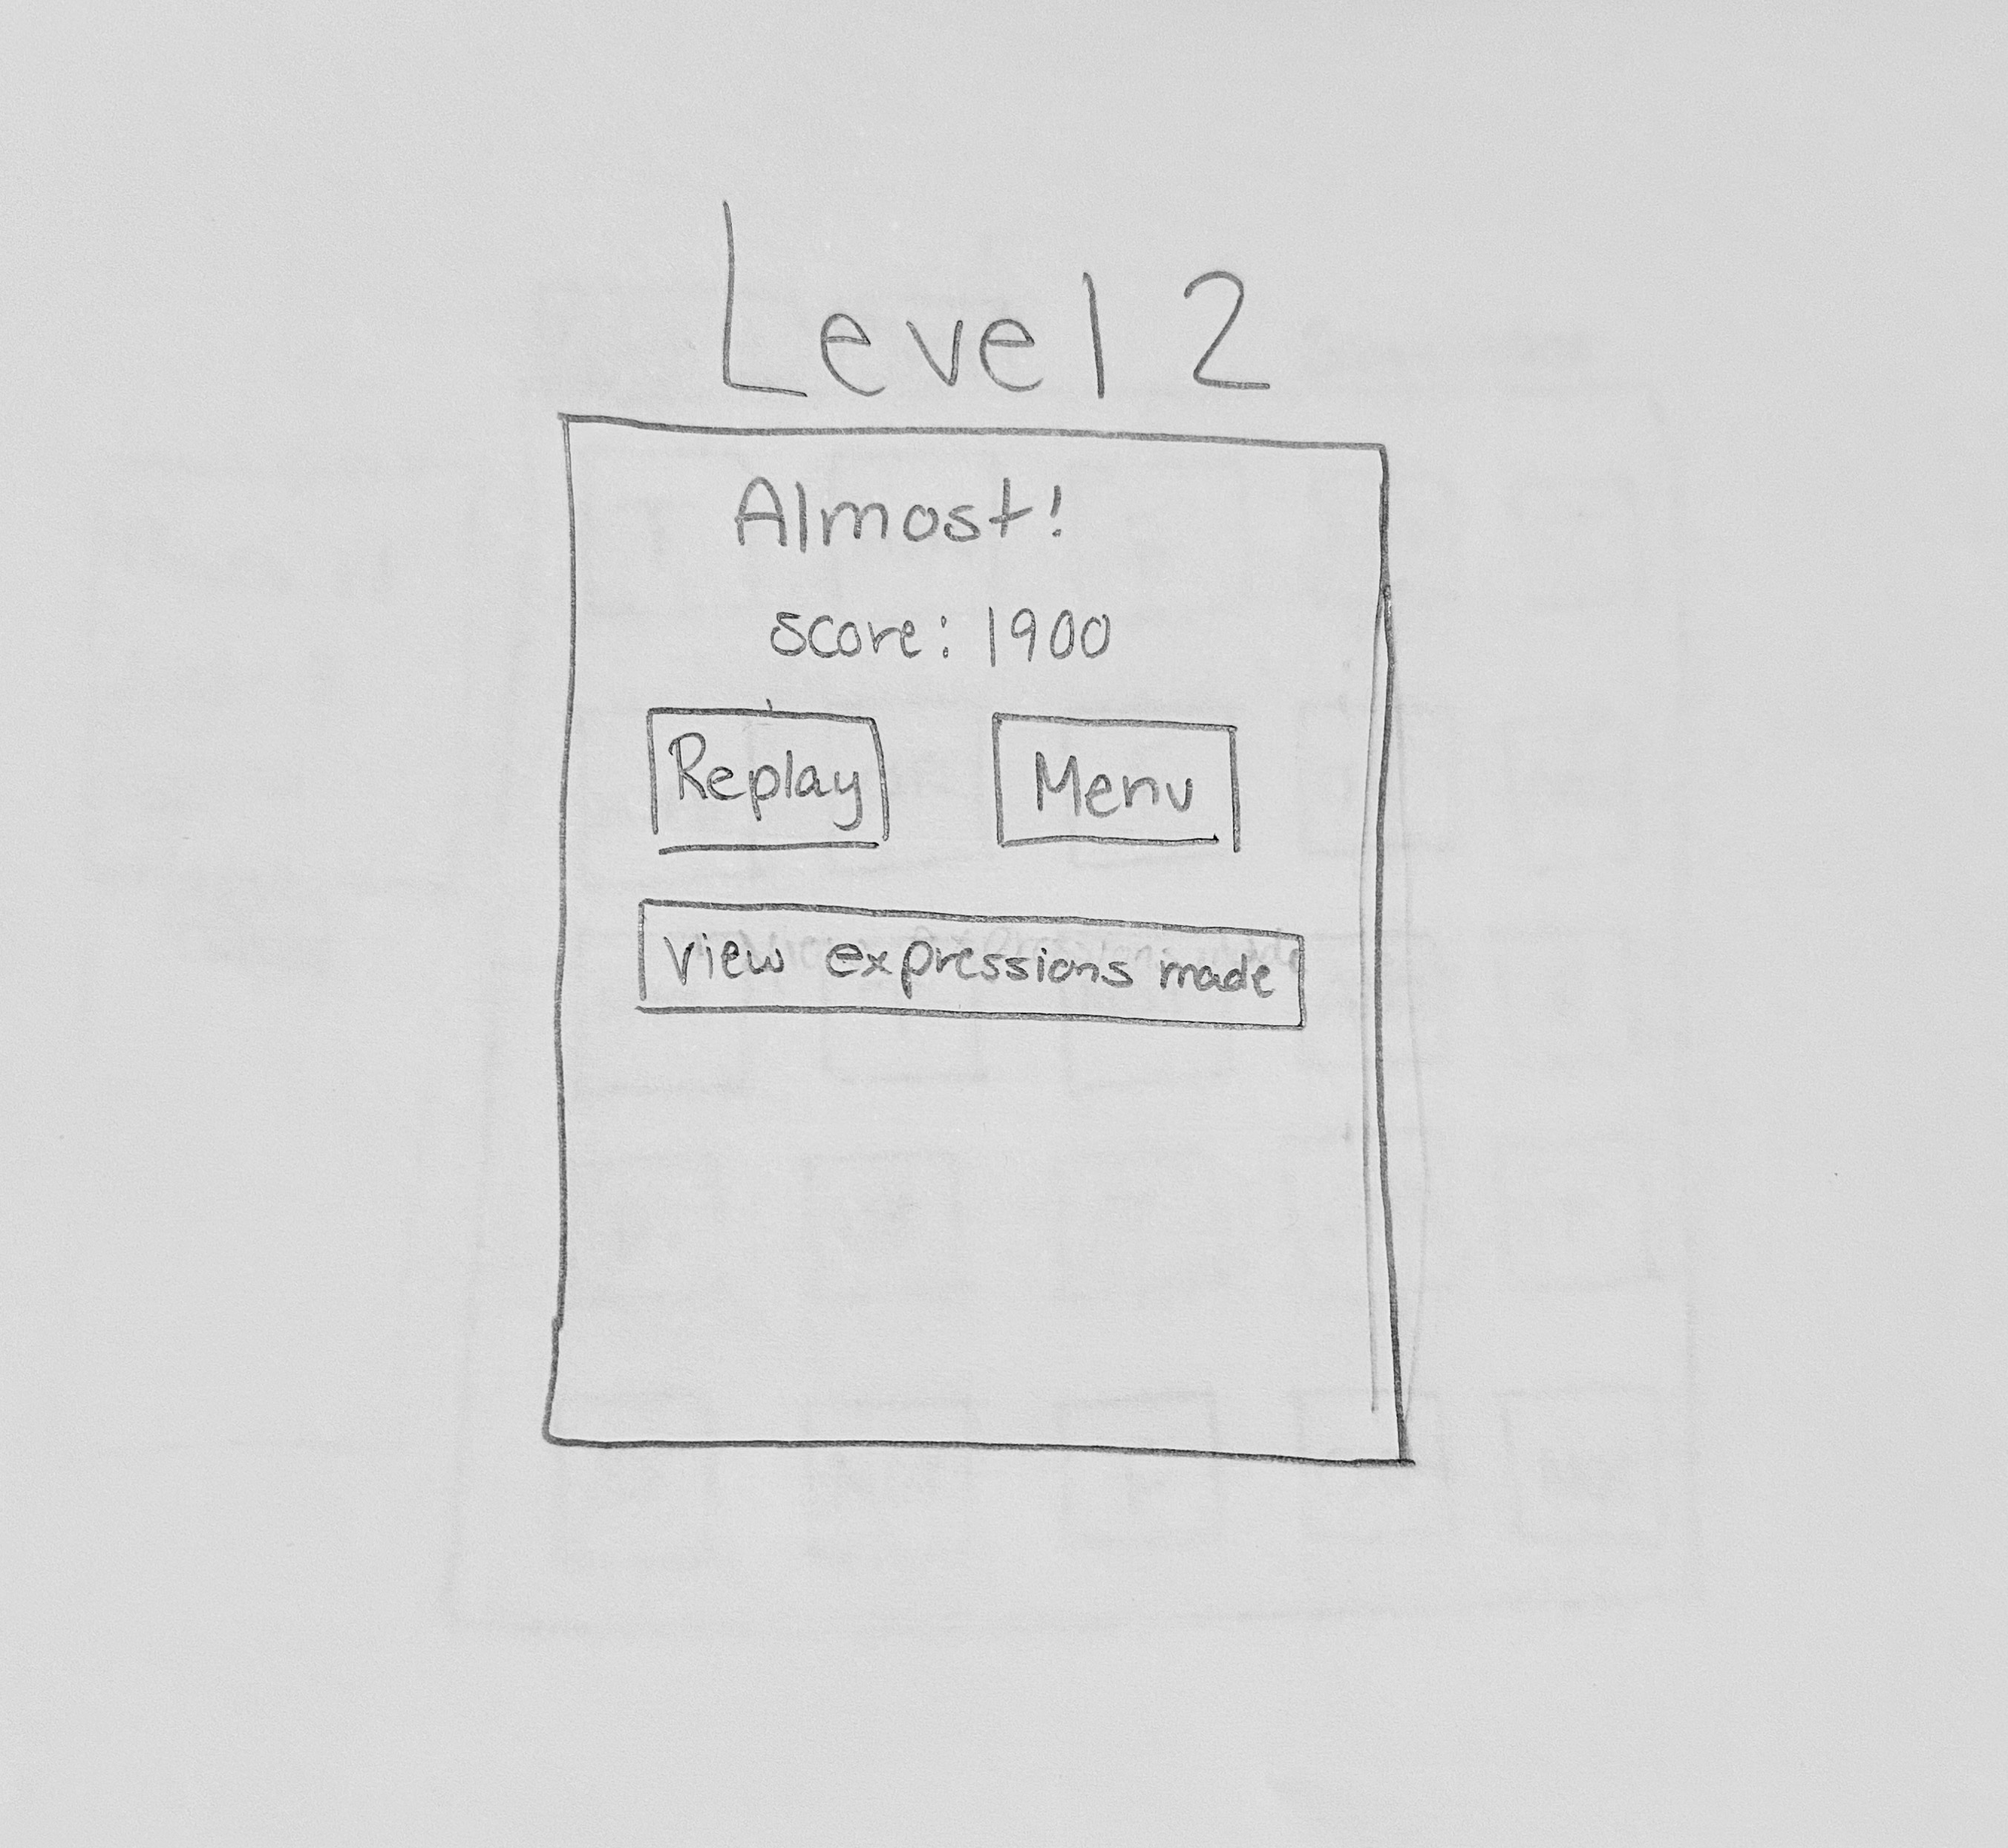 Level 2
Almost!
score: 1900
Replay Menu
View expressions made